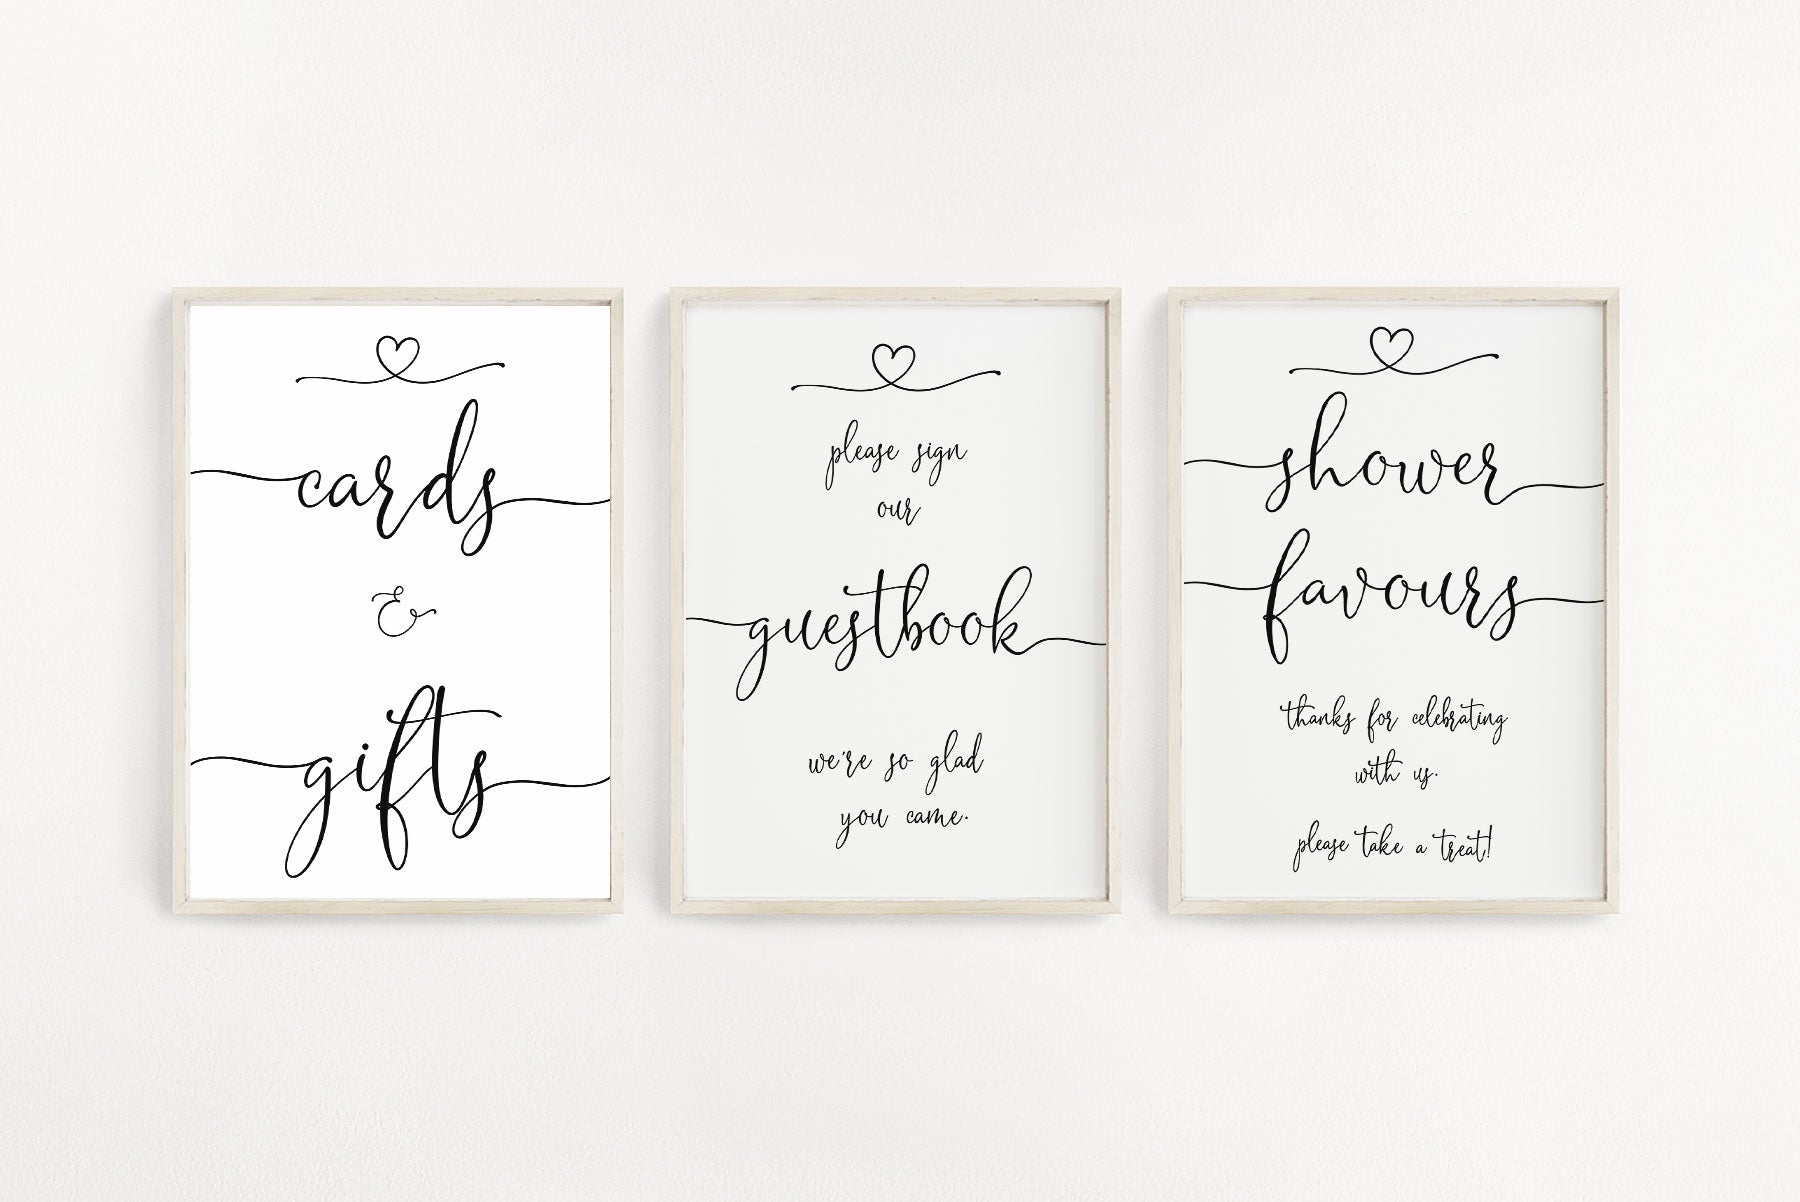 cards
&
gifts
please sign
our
guestbook
we're so glad
you came.
shower
favours
thanks for celebrating
with us.
please take a treat!